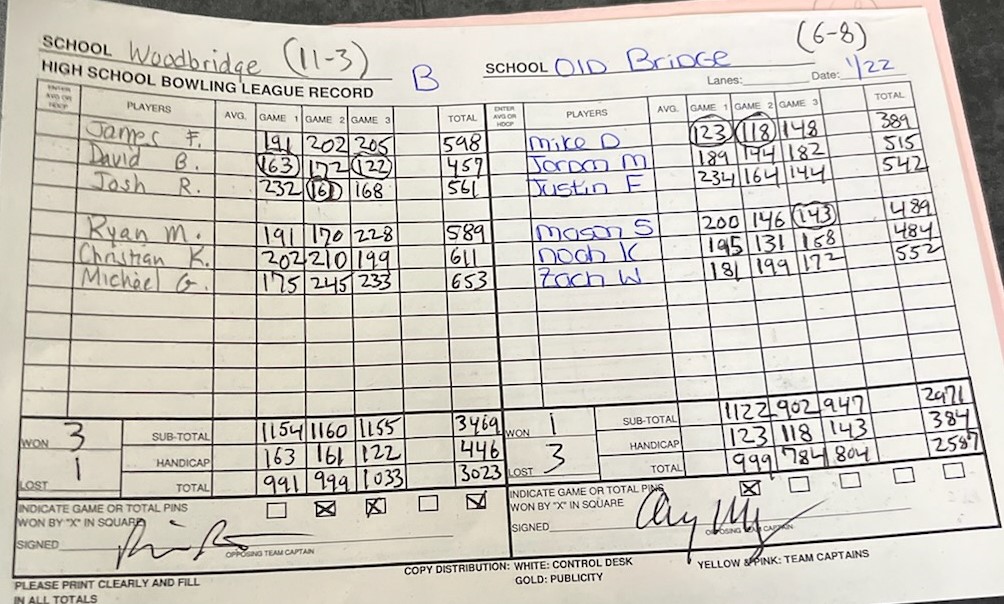 SCHOOL Woodbridge (11-3) B SCHOOL OlD Bridge (6-8)
HIGH SCHOOL BOWLING LEAGUE RECORD Lanes: Date: 1/22
ENTER AVG OR HDCP PLAYERS AVG. GAME 1 GAME 2 GAME 3 TOTAL ENTER AVG OR HDCP PLAYERS AVG. GAME 1 GAME 2 GAME 3 TOTAL
James F. 191 202 205 598 mike D 123 118 148 389
David B. 163 172 122 457 Jordan M 189 144 182 515
Josh R. 232 161 168 561 Justin F 234 164 144 542
Ryan M. 191 170 228 589 mason S 200 146 143 489
Christian K. 202 210 199 611 noah K 195 131 158 484
Michael G. 175 245 233 653 Zach W 181 199 172 552
WON 3 SUB-TOTAL 1154 1160 1155 3469 WON 1 SUB-TOTAL 1122 902 947 2971
HANDICAP 163 161 122 446 HANDICAP 123 118 143 384
LOST 1 TOTAL 991 999 1033 3023 LOST 3 TOTAL 999 784 804 2587
INDICATE GAME OR TOTAL PINS WON BY "X" IN SQUARE INDICATE GAME OR TOTAL PINS WON BY "X" IN SQUARE
SIGNED OPPOSING TEAM CAPTAIN SIGNED OPPOSING TEAM CAPTAIN
PLEASE PRINT CLEARLY AND FILL IN ALL TOTALS
COPY DISTRIBUTION: WHITE: CONTROL DESK YELLOW & PINK: TEAM CAPTAINS
GOLD: PUBLICITY